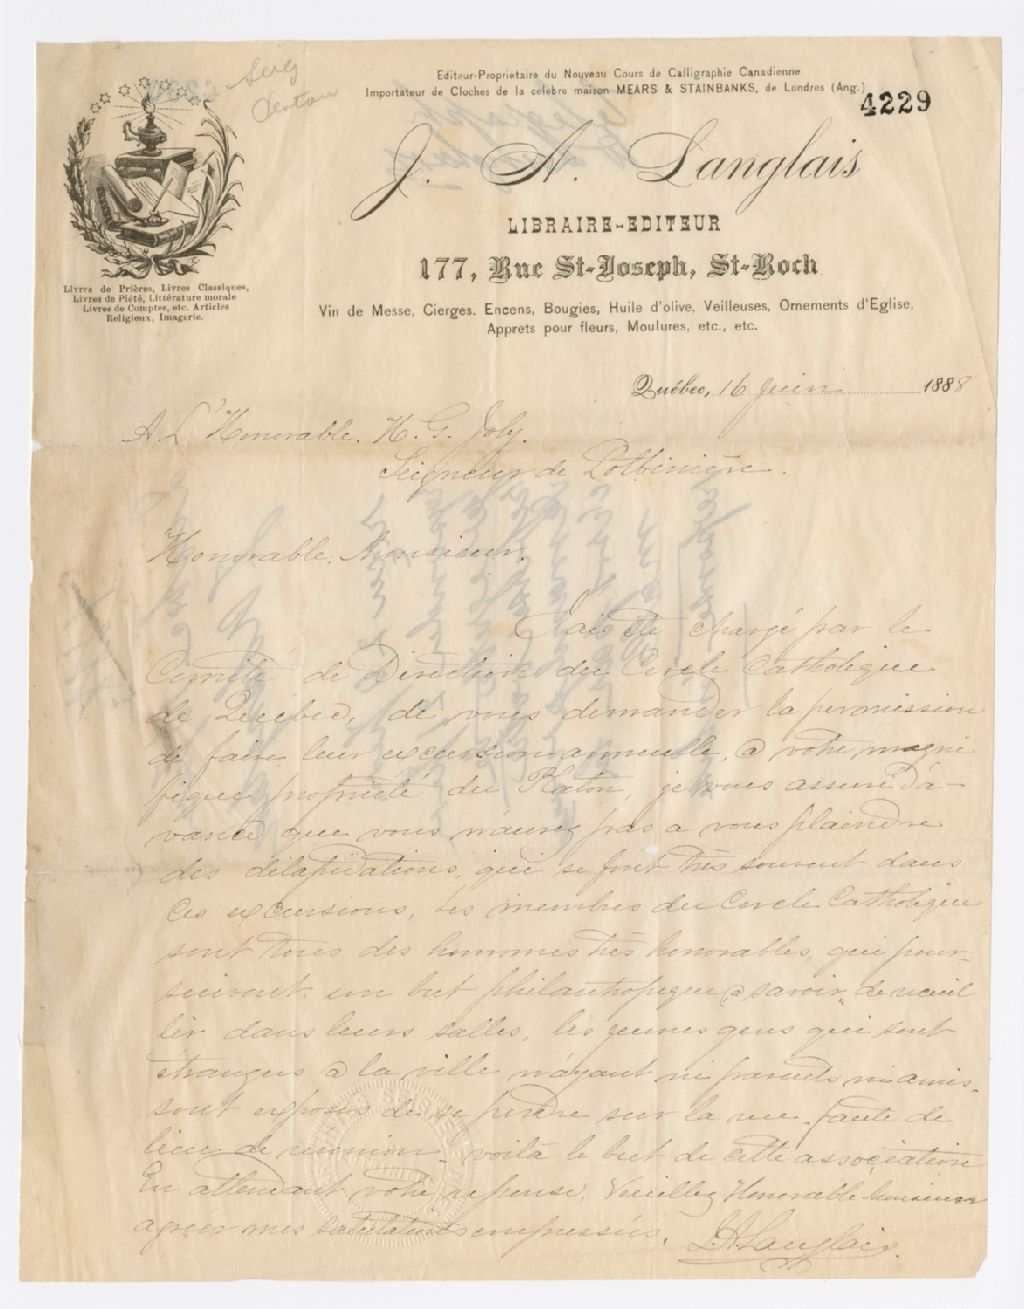 Editeur-Proprietaire du Nouveau Cours de Calligraphie Canadienne
Importateur de Cloches de la célèbre maison MEARS & STAINBANKS, de Londres (Ang.)
4229
J. A. Langlais
LIBRAIRE-EDITEUR
177, Rue St-Joseph, St-Roch
Vin de Messe, Cierges, Encens, Bougies, Huile d'olive, Veilleuses, Ornements d'Eglise,
Apprets pour fleurs, Moulures, etc., etc.
Livres de Prières, Livres Classiques,
Livres de Piété, Littérature morale
Livres de Comptes, etc. Articles
Religieux, Imagerie.
Québec, 16 Juin 1888
A L'Honorable. H. G. Joly.
Seigneur de Lotbinière.
Honorable, Monsieur.
J'ai été chargé par le
Comité de Direction du Cercle Catholique
de Québec, de vous demander la permission
de faire leur excursion annuelle, a votre magni
fique propriété du Platon, je vous assure d'a-
vance que vous n'aurez pas a vous plaindre
des dilapidations, qui se font très souvent dans
ces excursions, les membres du Cercle Catholique
sont tous des hommes très honorables, qui pour-
suivent un but philantropique a savoir, de receuil
lir dans leurs salles, les jeunes gens qui sont
étrangers a la ville n'ayant ni parents ni amis.
sont exposés de se perdre sur la rue faute de
lieu de réunion. voilà le but de cette association
En attendant votre reponse, Veuillez Honorable Monsieur
agréer mes salutations empressées.
J.A. Langlais.